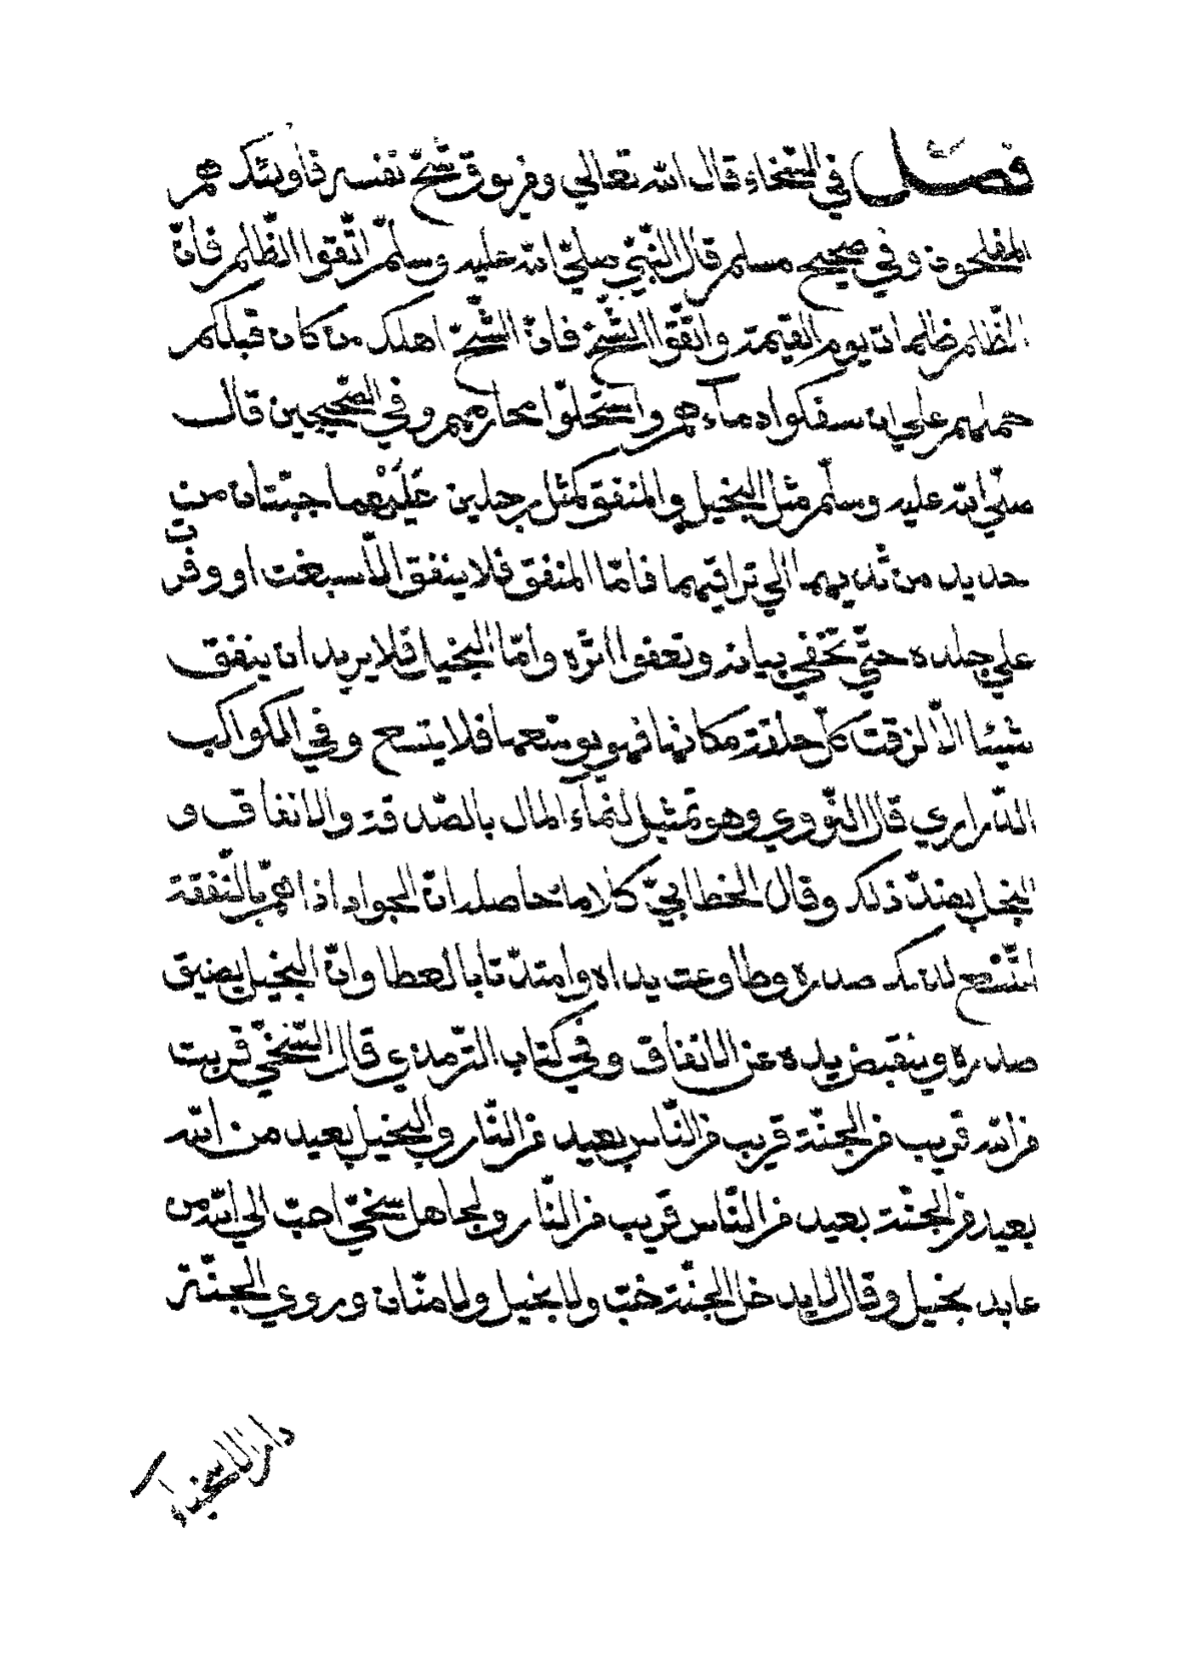 فصل في السّخاء قال الله تعالى ومن يوق شحّ نفسه فاولئك هم
المفلحون وفي صحيح مسلم قال النّبيّ صلّي الله عليه وسلّم اتّقوا الظّلم فانّ
الظّلم ظلمات يوم القيمة واتّقوا الشّحّ فانّ الشّحّ اهلك من كان قبلكم
حملهم علي ان سفكوا دمآءهم واستحلّوا محارمهم وفي الصّحيحين قال
صلّي الله عليه وسلّم مثل البخيل والمنفق كمثل رجلين عَلَيْهما جبّتان من
حديد من ثديهما الي تراقيهما فامّا المنفق فلا ينفق الّا سبغت او وفرت
علي جلده حتّي تخفي بنانه وتعفوا اثره وامّا البخيل فلا يريد ان ينفق
شيئا الّا لزقت كلّ حلقة مكانها فهو يوسّعها فلا يتسع وفي الكواكب
الدّراري قال النّووي وهو تمثيل لنمآء المال بالصّدقة والانفاق و
البخل بضدّ ذلك وقال الخطابيّ كلاما حاصله انّ الجواد اذا همّ بالنّفقة
اتّسع لذلك صدره وطاوعت يداه وامتدّتا بالعطا وانّ البخيل يضيق
صدره وينقبض يده عن الانفاق وفي كتاب التّرمذي قال السّخيّ قريب
من الله قريب من الجنّة قريب من النّاس بعيد من النّار والبخيل بعيد من الله
بعيد من الجنّة بعيد من النّاس قريب من النّار ولجاهل سخيّ احبّ الي الله من
عابد بخيل وقال لا يدخل الجنّة خبّ ولا بخيل ولا منّان وروي الجنّة
دار الاسخياء